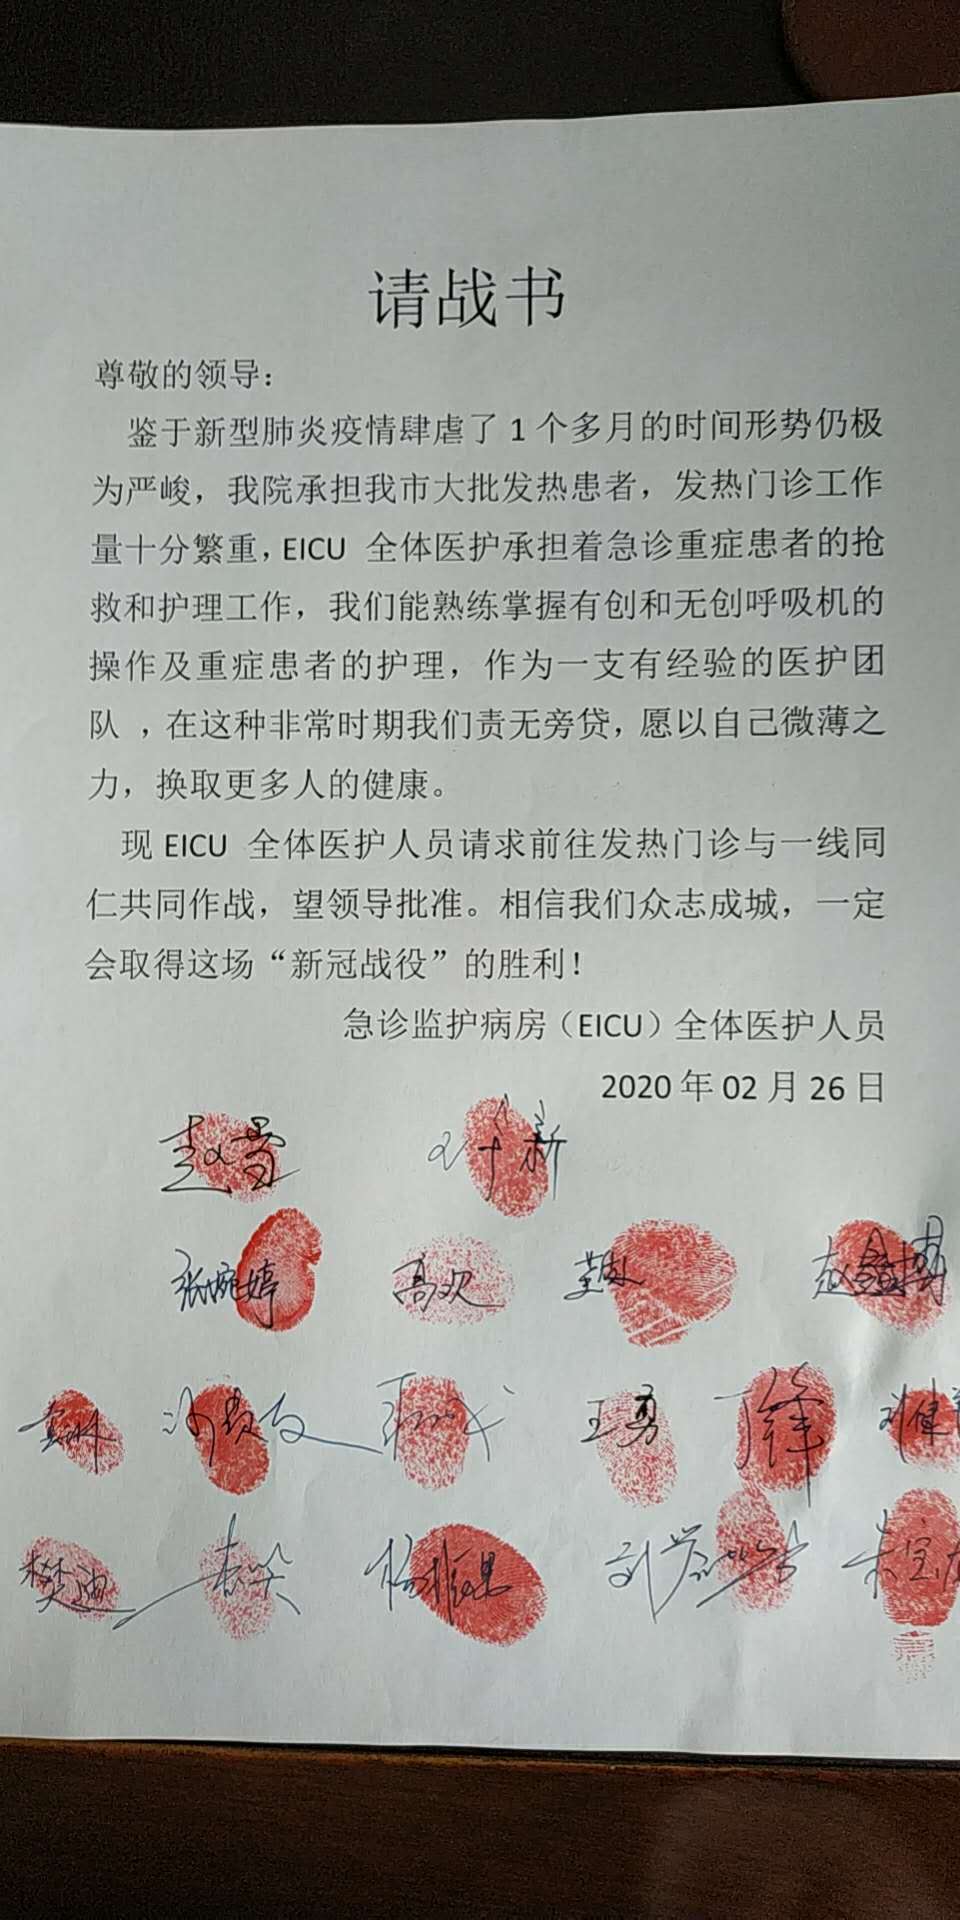 请战书
尊敬的领导：
鉴于新型肺炎疫情肆虐了1个多月的时间形势仍极
为严峻，我院承担我市大批发热患者，发热门诊工作
量十分繁重，EICU 全体医护承担着急诊重症患者的抢
救和护理工作，我们能熟练掌握有创和无创呼吸机的
操作及重症患者的护理，作为一支有经验的医护团
队 ，在这种非常时期我们责无旁贷，愿以自己微薄之
力，换取更多人的健康。
现 EICU 全体医护人员请求前往发热门诊与一线同
仁共同作战，望领导批准。相信我们众志成城，一定
会取得这场“新冠战役”的胜利！
急诊监护病房（EICU）全体医护人员
2020 年 02 月 26 日
张婉婷 高欢
王勇 丁锋
樊迪